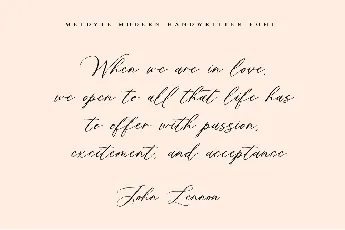 MELDYTE MODERN HANDWRITTEN FONT
When we are in love,
we open to all that life has
to offer with passion,
excitement, and acceptance
John Lennon